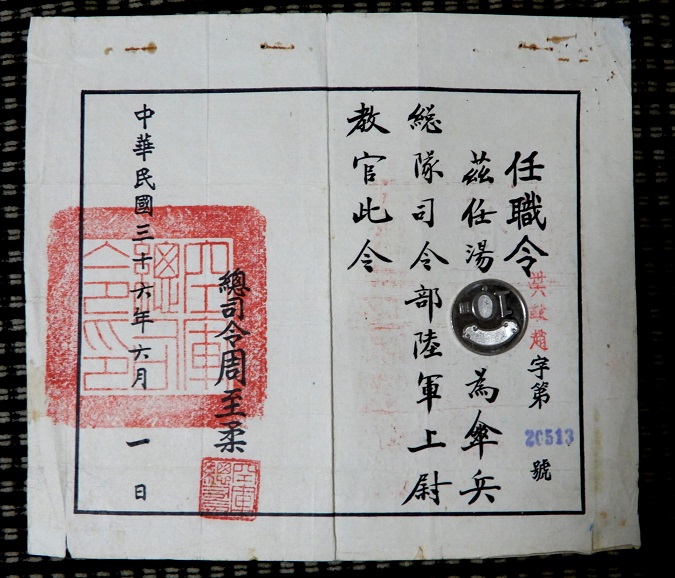 任職令
字第 20513 號
茲任湯 為傘兵
総隊司令部陸軍上尉
教官此令
總司令周至柔
空軍總司令印
中華民國三十六年六月一日